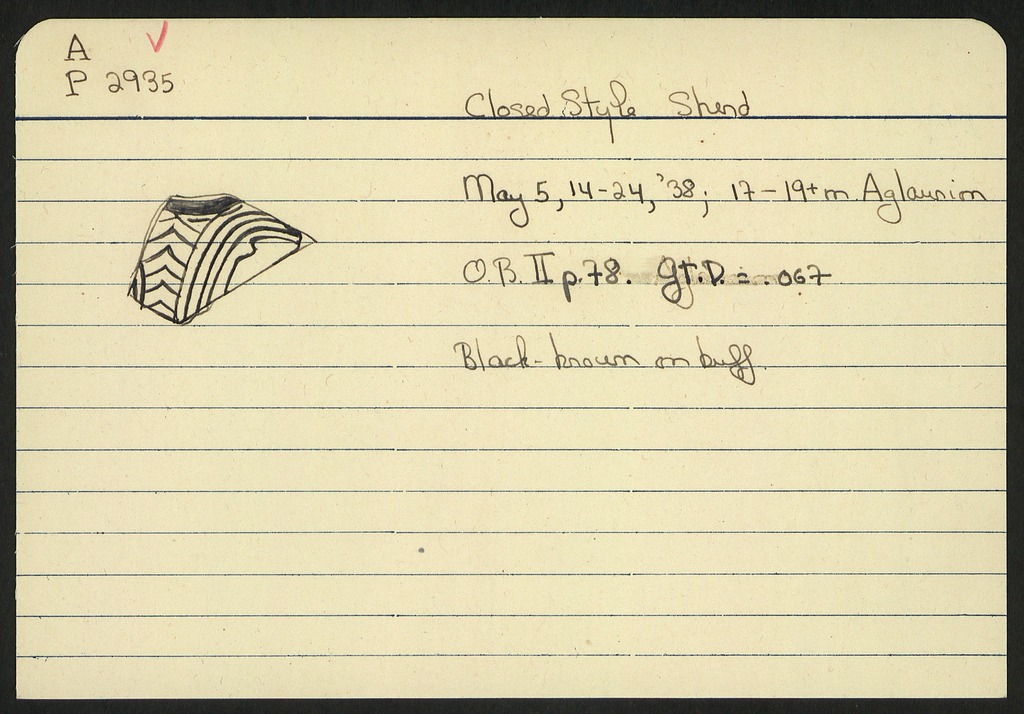 A
P 2935
Closed Style Sherd
May 5, 14-24, '38; 17-19+m Aglaurion
O.B. II p.78. Gt.D. = .067
Black-brown on buff.